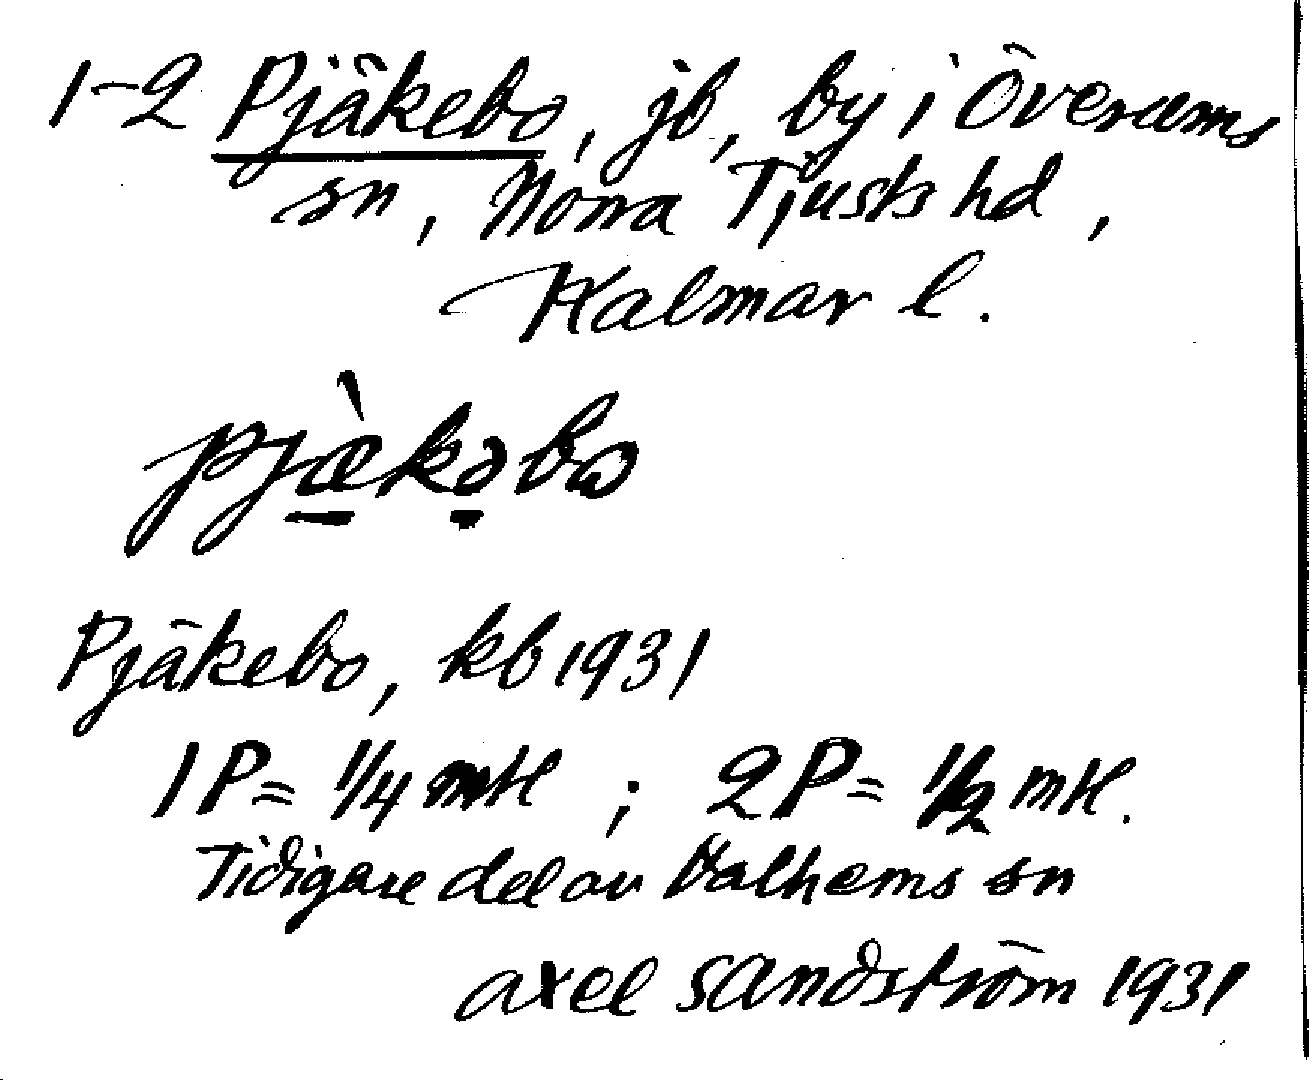 1-2 Pjäkebo, jb, by i Överums
sn, Norra Tjusts hd,
Kalmar l.
pjæ̠̀kə̠bω
Pjäkebo, kb 1931
1 P = 1/4 mtl ; 2 P = 1/2 mtl.
Tidigare del av Dalhems sn
axel sandström 1931